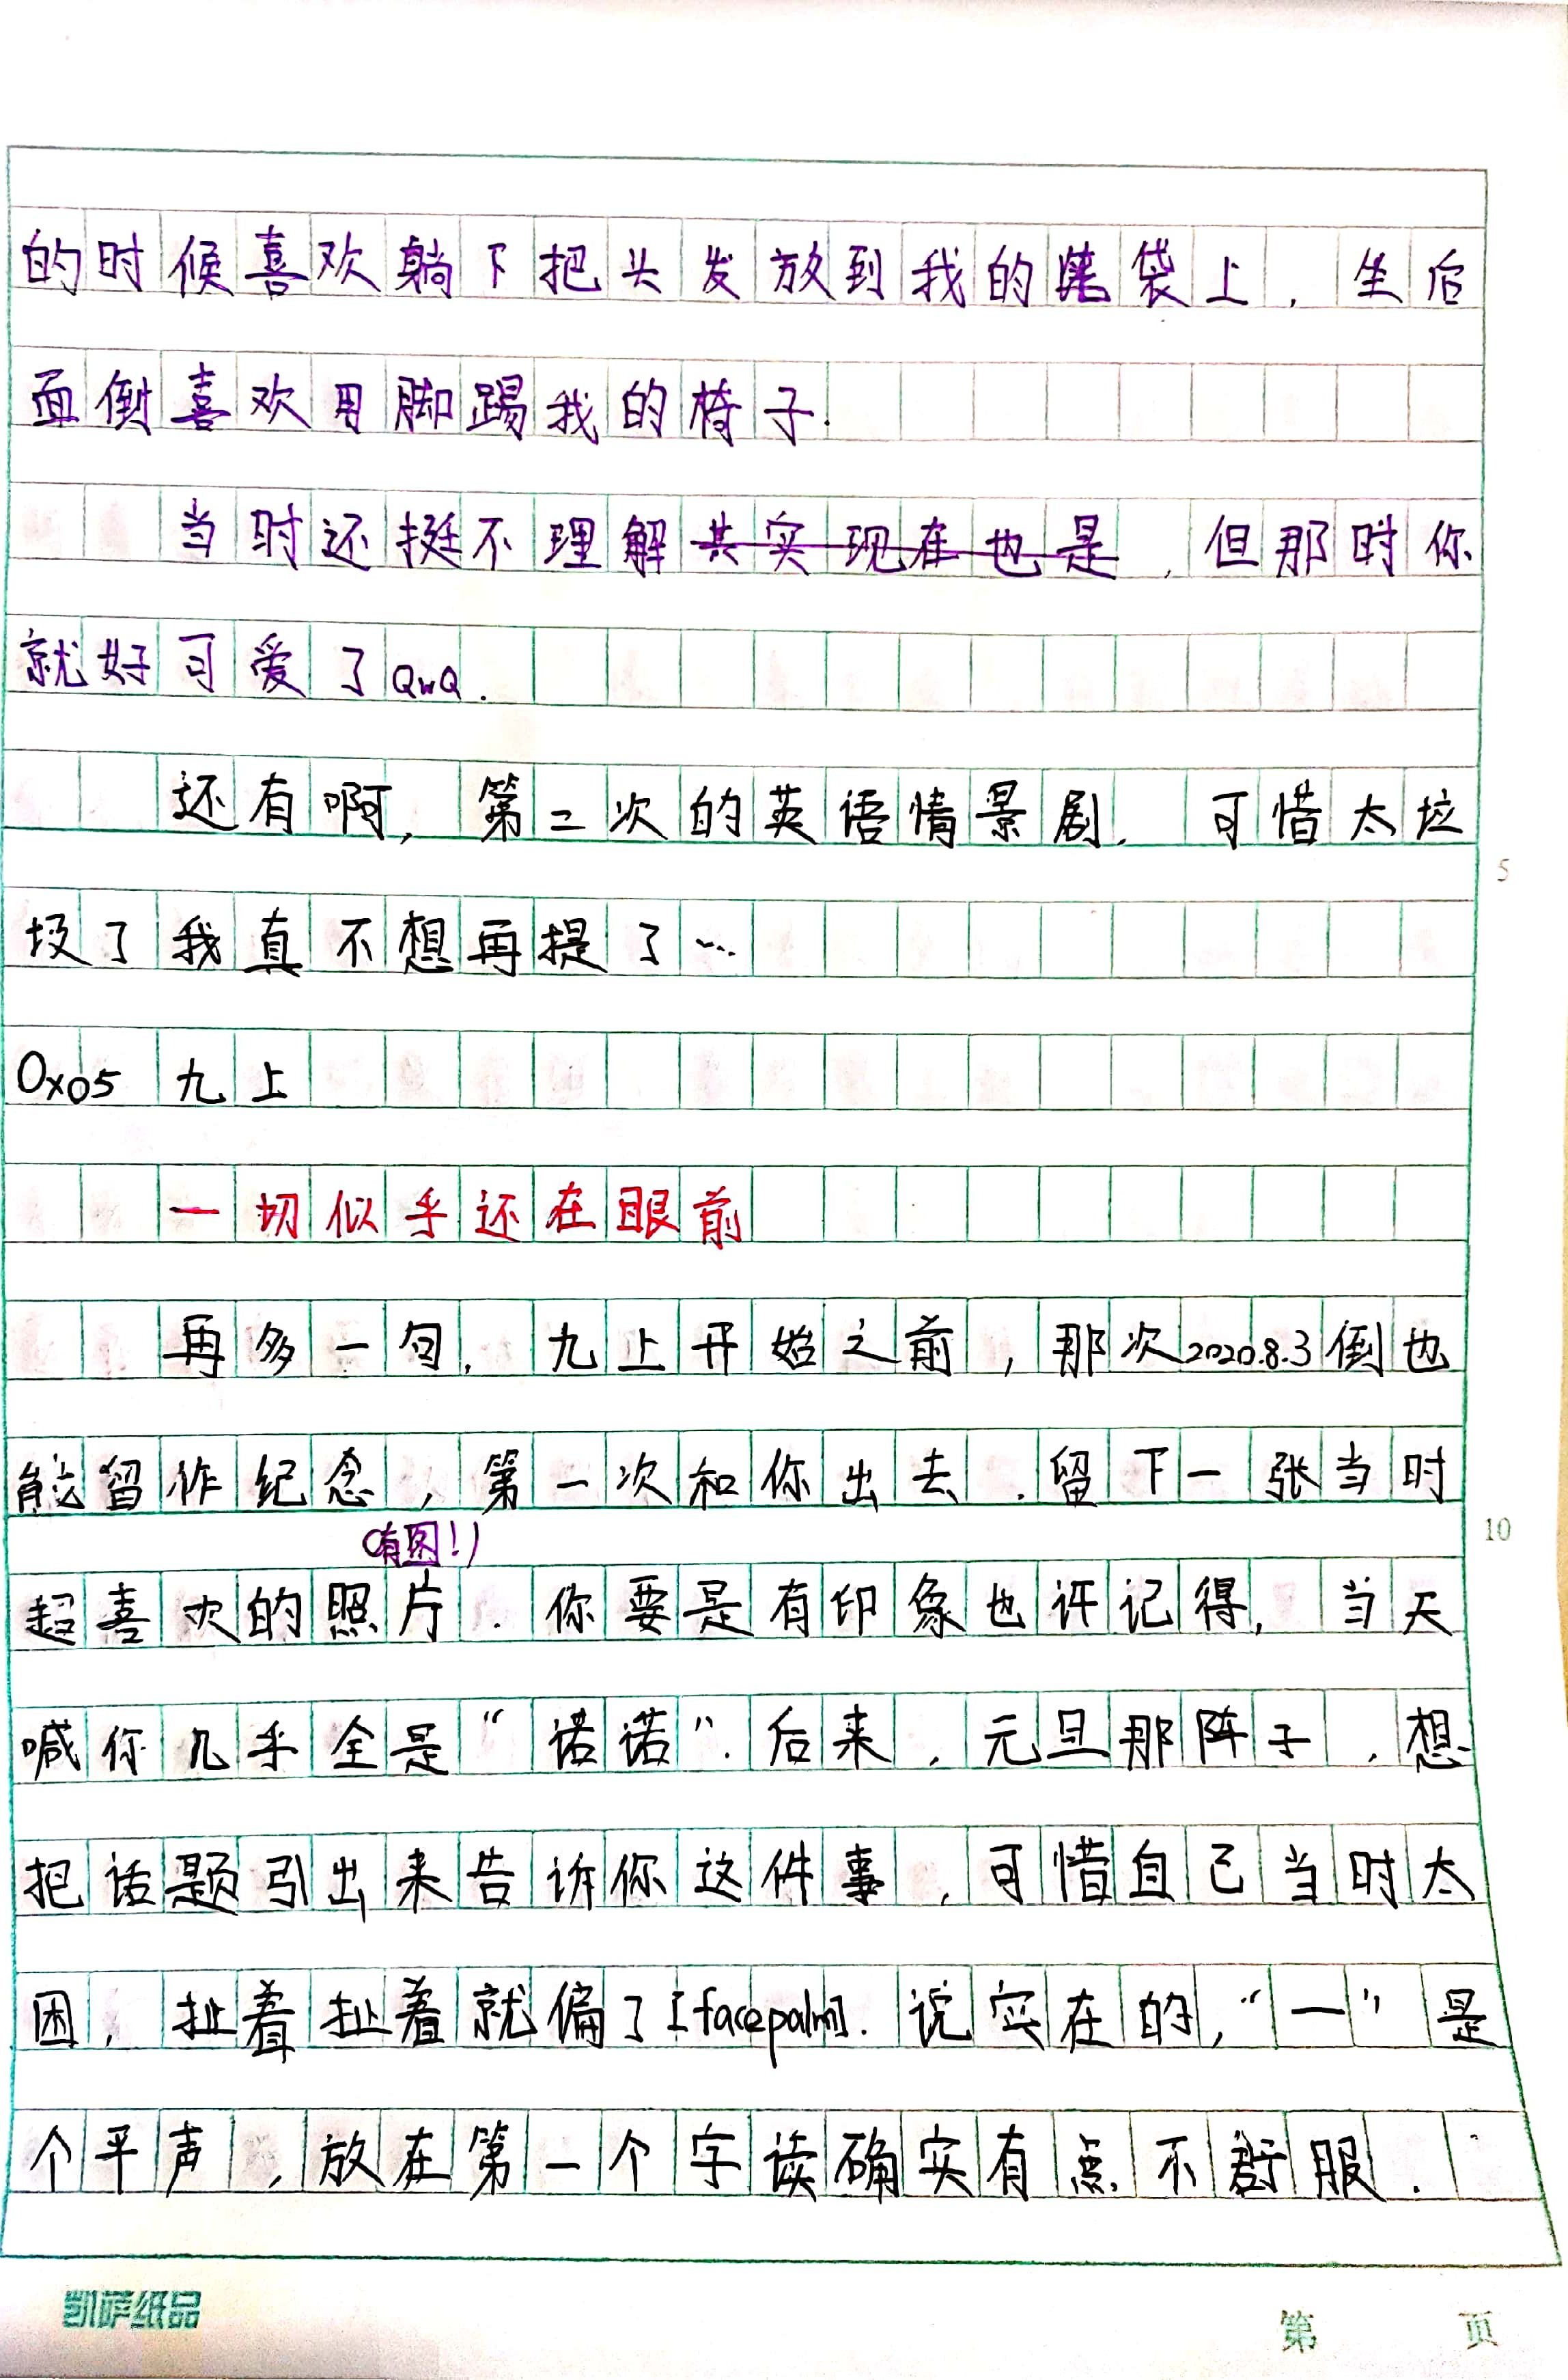 的时候喜欢躺下把头发放到我的笔袋上，坐后
面倒喜欢用脚踢我的椅子.
当时还挺不理解其实现在也是，但那时你
就好可爱了QwQ.
还有啊，第二次的英语情景剧，可惜太垃
圾了我真不想再提了…
5
0x05 九上
一切似乎还在眼前
再多一句，九上开始之前，那次2020.8.3倒也
能留作纪念，第一次和你出去.留下一张当时
(有图!)
10
超喜欢的照片.你要是有印象也许记得，当天
喊你几乎全是“诺诺”.后来，元旦那阵子，想
把话题引出来告诉你这件事，可惜自己当时太
困，扯着扯着就偏了[facepalm].说实在的，“一”是
个平声，放在第一个字读确实有点不舒服.
凯萨纸品
第 页